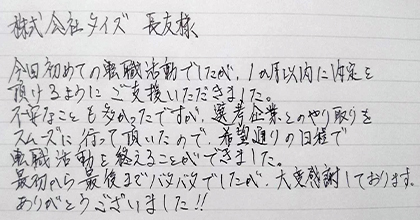 株式会社タイズ 長友様
今回初めての転職活動でしたが、1か月以内に内定を
頂けるようにご支援いただきました。
不安なことも多かったですが、選考企業とのやり取りを
スムーズに行って頂いたので、希望通りの日程で
転職活動を終えることができました。
最初から最後までバタバタでしたが、大変感謝しております。
ありがとうございました!!